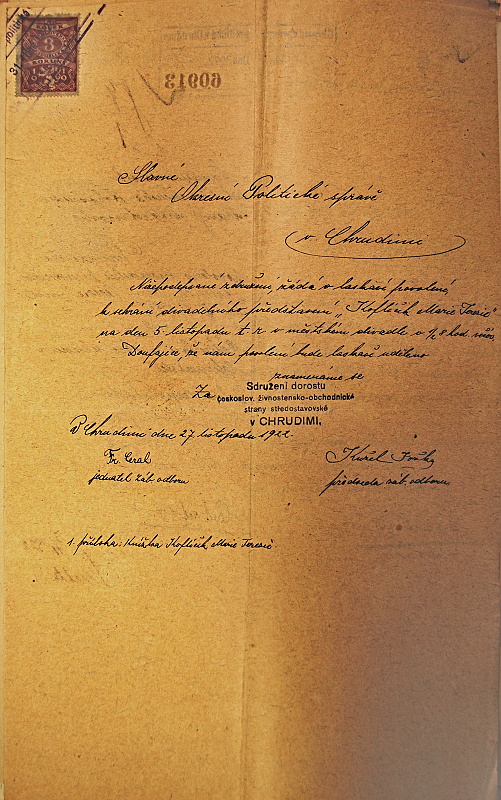 politick
31
3
1919
60913
Slavné
Okresní Politické správě
v Chrudimi
Nížepodepsané sdružení, žádá o laskavé povolení
k sehrání divadelního představení „Koflíček Marie Terezie"
na den 5 listopadu t. r. v městském divadle o ½ 8 hod. več.
Doufajíce, že nám povolení bude laskavě uděleno
znamenáme se
Za Sdružení dorostu
českoslov. živnostensko-obchodnické
strany středostavovské
v CHRUDIMI.
V Chrudimi dne 27. listopadu 1922.
Fr. Ceral
jednatel záb. odboru
Karel
předseda záb. odboru
1. příloha: Knížka Koflíček Marie Terezie.